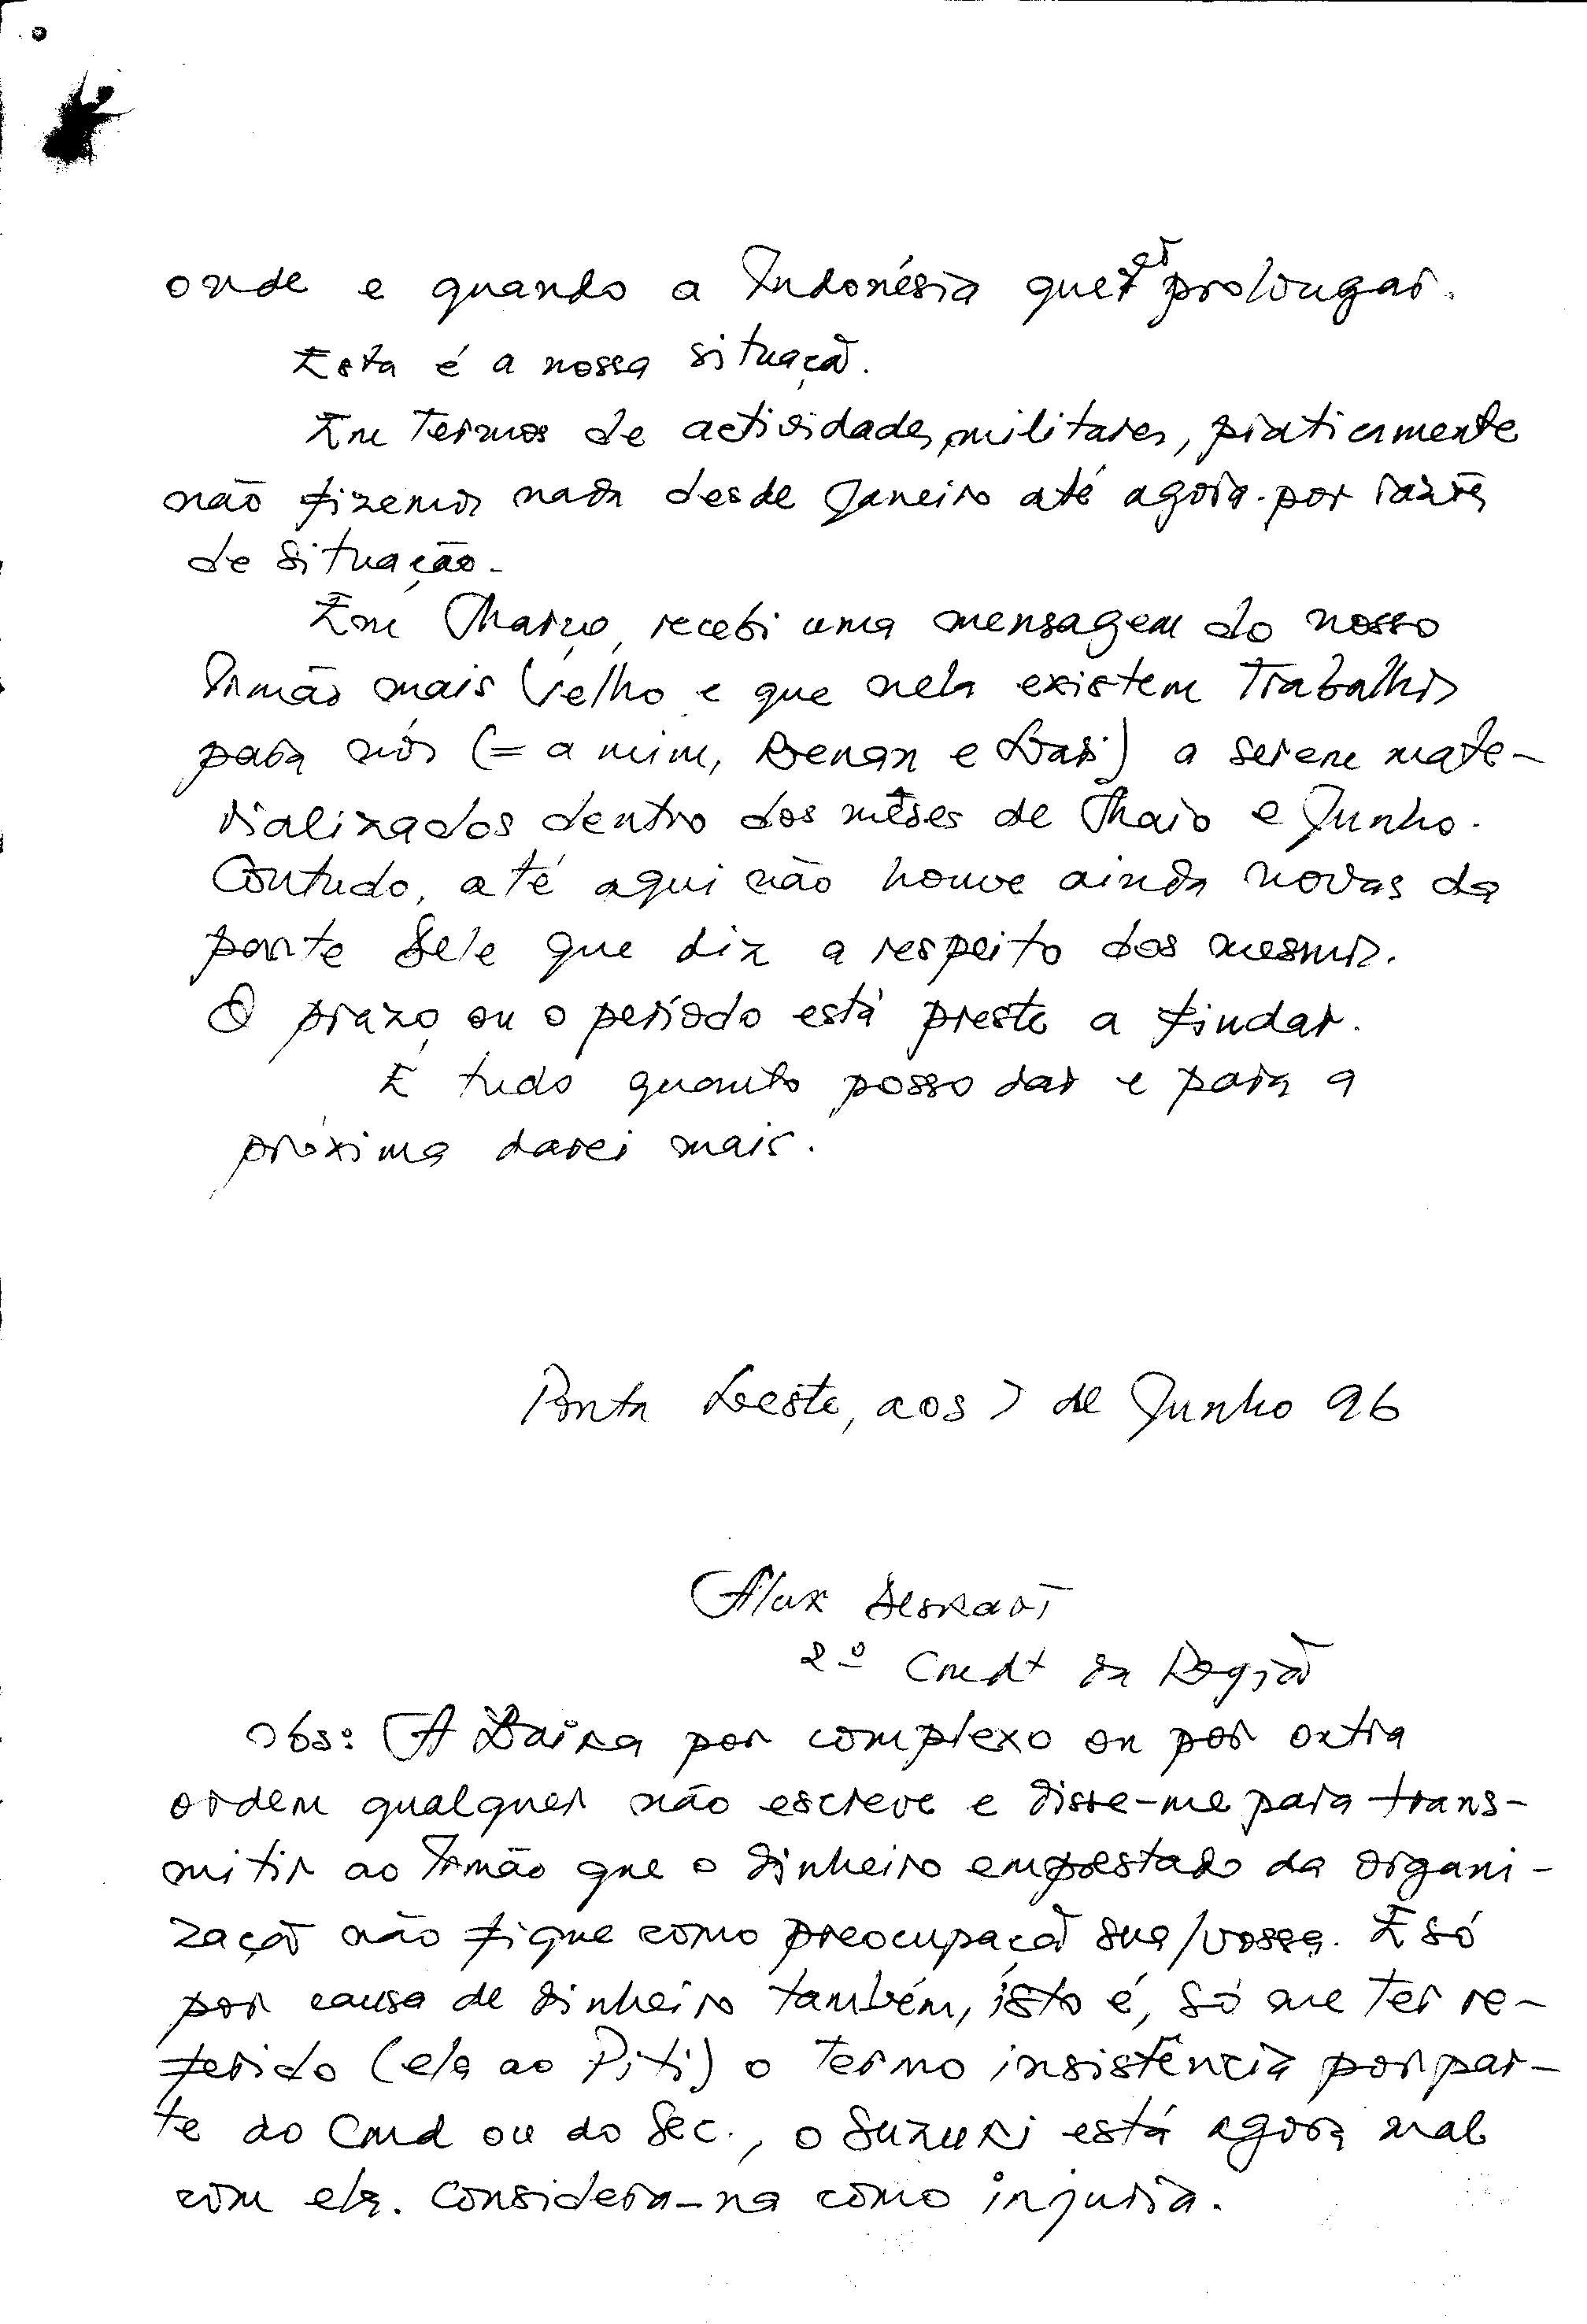 onde e quando a Indonésia quer prolongar.
Esta é a nossa situaçã.
Em Termos de actividades militares, praticamente
não fizemos nada desde Janeiro até agora por razões
de situação.
Em Março, recebi uma mensagem do nosso
Irmão mais Velho e que nela existem Trabalhos
para nós (= a mim, Renan e Lari) a serem mate-
rializados dentro dos mêses de Maio e Junho.
Contudo, até aqui não houve ainda novas da
parte dele que diz a respeito dos mesmos.
O prazo ou o período está preste a findar.
É tudo quanto posso dar e para a
próxima darei mais.
Ponta Leste, aos 7 de Junho 96
Alux
2º Cmdt da Região
Obs: A Laika por complexo ou por outra
ordem qualquer não escreve e disse-me para trans-
mitir ao Irmão que o dinheiro emprestado da organi-
zaçã não fique como preocupaçã sua/vossa. É só
por causa de dinheiro também, isto é, só me ter re-
ferido (ela ao Piti) o termo insistência por par-
te do Cmd ou do Sec., o Suzuki está agora mal
com ela. Considera-na como injuria.